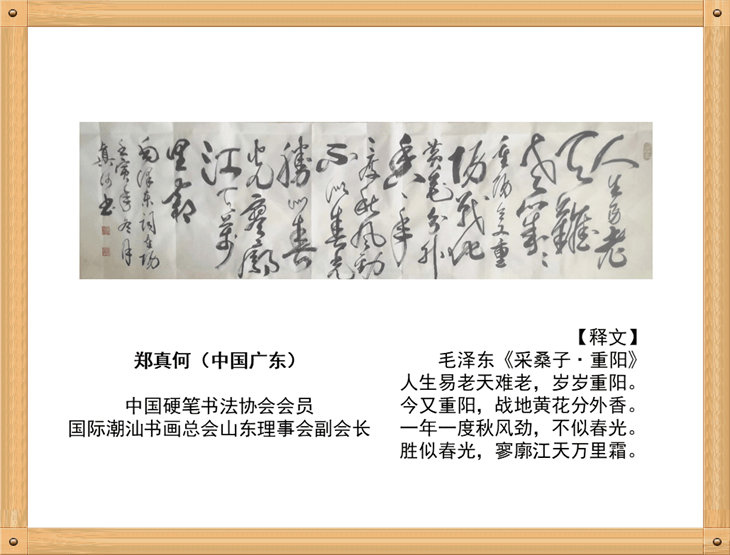 人生易老
天難
老歲歲
重陽今又重
陽戰地
黄花分外
香一年
一度秋風勁
不似春光
勝似春
光寥廓
江天萬
里霜
毛澤東詞
壬寅年冬月
真何书
郑真何（中国广东）
中国硬笔书法协会会员
国际潮汕书画总会山东理事会副会长
【释文】
毛泽东《采桑子·重阳》
人生易老天难老，岁岁重阳。
今又重阳，战地黄花分外香。
一年一度秋风劲，不似春光。
胜似春光，寥廓江天万里霜。